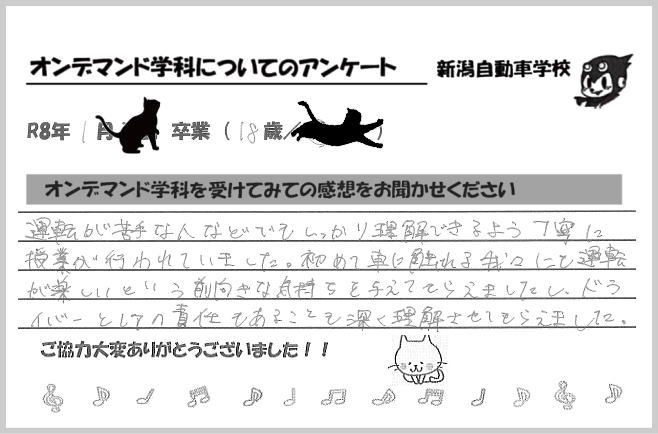 オンデマンド学科についてのアンケート 新潟自動車学校
R8年 1月 卒業 ( 18歳/ )
オンデマンド学科を受けてみての感想をお聞かせください
運転が苦手な人などでもしっかり理解できるよう丁寧に
授業が行われていました。初めて車に触れる我々にも運転
が楽しいという前向きな気持ちを与えてもらえましたし、ドラ
イバーとしての責任もあることも深く理解させてもらえました。
ご協力大変ありがとうございました!!